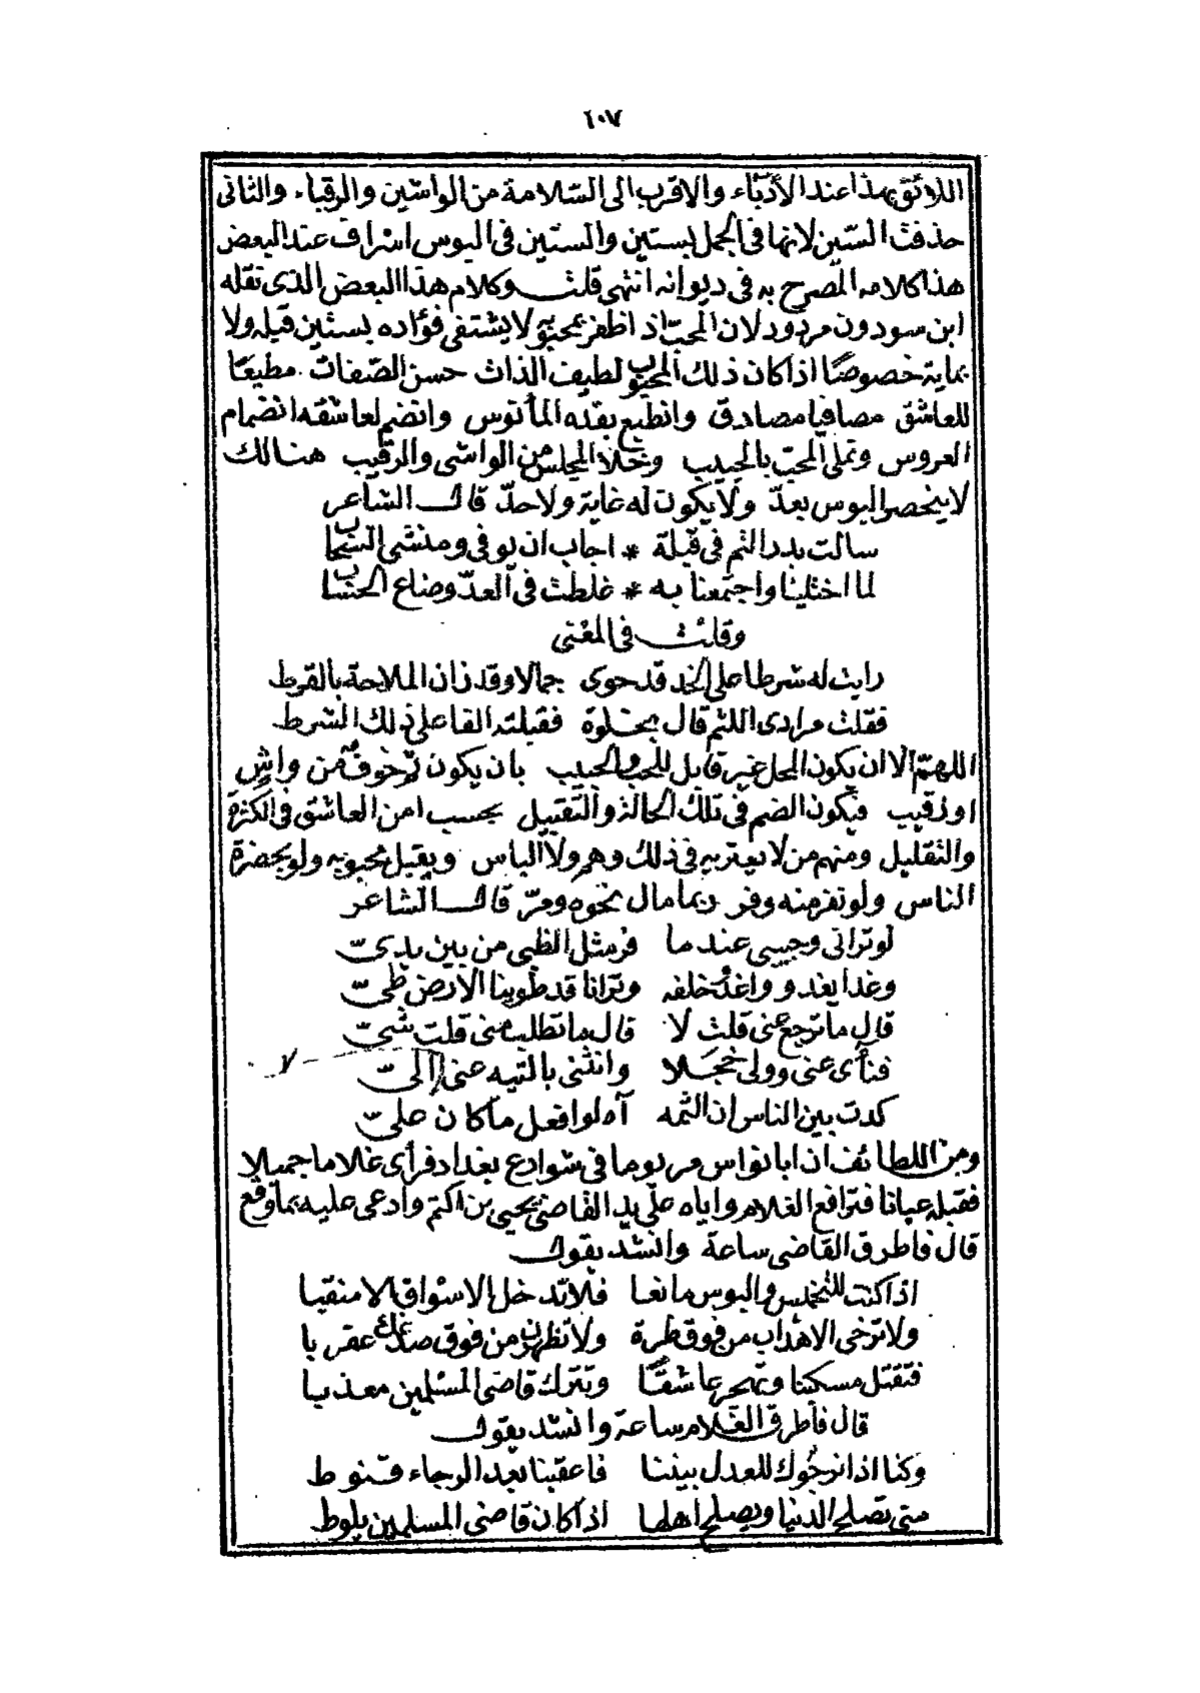 ١٠٧
اللائق بهذا عند الأدباء والاقرب الى السّلامة من الواشين والرقباء والثانى
حذفت الستين لانها فى الجمل بستين والستين فى البوس اسراف عند البعض
هذا كلامه المصرح به فى ديوانه انتهى قلت وكلام هذا البعض الذى نقله
ابن سودون مردود لان المحبّ اذ اظفر بمحبوبه لا يشتفى فؤاده بستين قبله ولا
بماية خصوصًا اذا كان ذلك المحبوب لطيف الذات حسن الصّفات مطيعًا
للعاشق مصافيا مصادق وانطبع بقده المأنوس وانضم لعاشقه انضمام
العروس وتملى المحبّ بالحبيب وخلا المجلس من الواشى والرقيب هنالك
لا ينحصر البوس بعدّ ولا يكون له غاية ولا حدّ قال الشاعر
سالت بدر التم فى قبلة * اجاب ان نوفى ومنشى السّحاب
لما اختلينا واجتمعنا به * غلطت فى العدّ وضاع الحسّاب
وقلت فى المعْنى
رايت له شرطا على الخد قد حوى جمالا وقد زان الملاحة بالقرط
فقلت مرادى اللثم قال بخلوة فقبلته الفا على ذلك الشرط
اللهمّ الا ان يكون المحل غير قابل للمحب والحبيب بان يكون ثم خوف من واشٍ
او رقيب فيكون الضم فى تلك الحالة والتقبيل بحسب امن العاشق فى الكثرة
والتقليل ومنهم من لا يعتريه فى ذلك وهم ولا الباس ويقبل محبوبه ولو بحضرة
الناس ولو نفر منه وفر ربما مال نحوه ومرّ قال الشاعر
لو ترانى وحبيبى عند ما فر مثل الظبى من بين يدىّ
وغدا يغدو واغدو خلفه وترانا قد طوينا الأرض طىّ
قال ما ترجع عنى قلت لا قال ما تطلب منى قلت شىّ
فنأى عنى وولى خجلا وانثنى بالتيه عنى لا إلىّ
كدت بين الناس ان الثمه آه لو افعل ما كان علىّ
ومن اللطائف ان ابا نواس مر يوما فى شوارع بغداد فرأى غلاما جميلا
فقبله عيانا فترافع الغلام واياه على يد القاضى يحيى بن اكتم وادعى عليه بما وقع
قال فاطرق القاضى ساعة وانشد يقول
اذا كنت للتخميش والبوس مانعا فلا تدخل الاسواق الا منقبا
ولا ترخى الاهداب من فوق طرة ولا تظهرن من فوق صدغك عقربا
فتقتل مسكينا وتهجر عاشقًا وتترك قاضى المسلمين معذبا
قال فأطرق الغلام ساعة وانشد يقول
وكنا اذا نرجوك للعدل بيننا فاعقبنا بعد الرجاء قنوط
متى تصلح الدنيا ويصلح اهلها اذا كان قاضى المسلمين يلوط